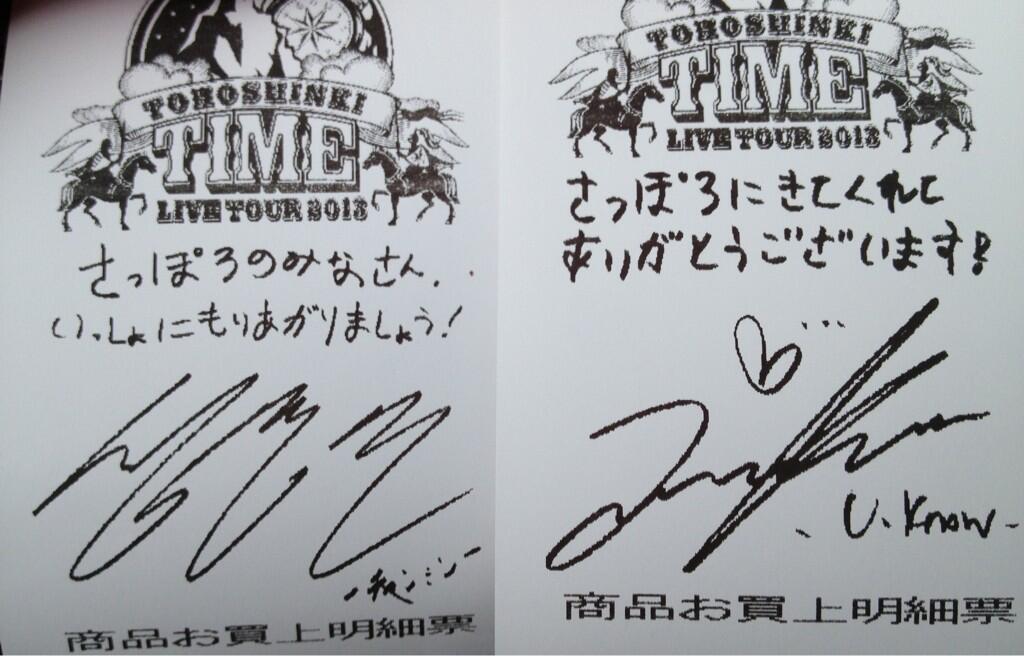 TOHOSHINKI
TIME
LIVE TOUR 2013
さっぽろのみなさん.
いっしょにもりあがりましょう!
-チャンミン-
商品お買上明細票
TOHOSHINKI
TIME
LIVE TOUR 2013
さっぽろにきてくれて
ありがとうございます!
- U.Know -
商品お買上明細票